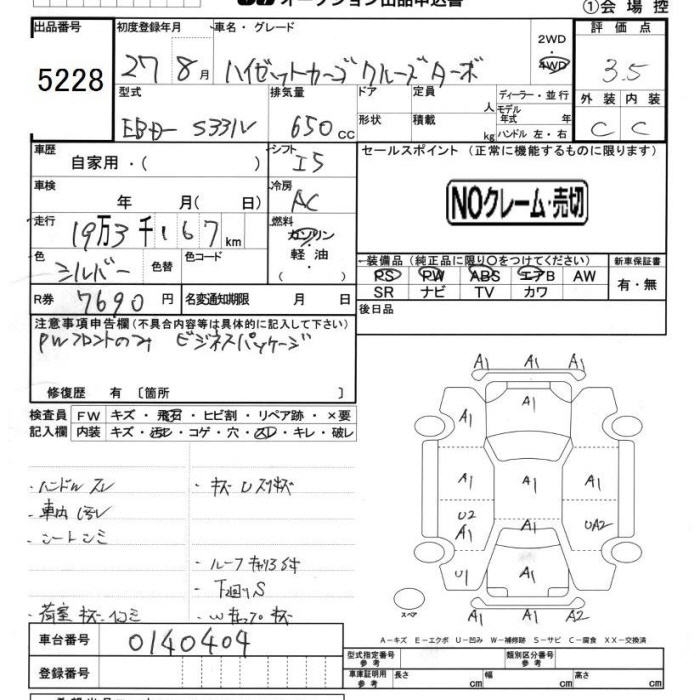 オークション出品申込書
①会場控
出品番号
5228
初度登録年月
27 8月
車名・グレード
ハイゼットカーゴ クルーズターボ
2WD
4WD
評価点
3.5
型式
EBD- S331V
排気量
650 cc
ドア
形状
定員
人
積載
kg
ディーラー・並行
モデル年式 年
ハンドル 左・右
外装 内装
C C
車歴
自家用・( )
シフト
I5
セールスポイント (正常に機能するものに限ります)
車検
年 月( 日)
冷房
AC
NOクレーム・売切
走行
19万3千167km
燃料
ガソリン
軽油
・( )
色
シルバー
色替
色コード
装備品 (純正品に限り○をつけてください)
新車保証書
PS PW ABS エアB AW
SR ナビ TV カワ
有・無
R券 7690円
名変通知期限 月 日
後日品
注意事項申告欄(不具合内容等は具体的に記入して下さい)
PWフロントのみ ビジネスパッケージ
修復歴 有 〔箇所 〕
検査員 FW キズ・飛石・ヒビ割・リペア跡・×要
記入欄 内装 キズ・汚れ・コゲ・穴・スレ・キレ・破レ
・ハンドルスレ
・キズ Uスリキズ
・車内汚レ
・シートシミ
・ルーフキャリヨゴキ
・下回りS
・荷室キズ・ヘコミ
・Wキャップキズ
A1 A1 A1 A1
A1 A1
A1 A1 A1
U2 A1 A1 UA2
U1 A1 A1
A1 A1 A2
スペア
A-キズ E-エクボ U-凹み W-補修跡 S-サビ C-腐食 XX-交換済
車台番号 0140404
登録番号
型式指定番号 参考
類別区分番号 参考
車庫証明用 参考 長さ cm 幅 cm 高さ cm